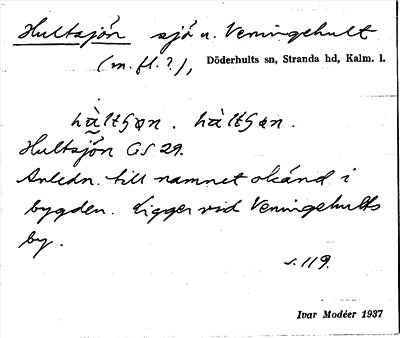 Hultsjön sjö n. Veningehult
(m. fl. ?), Döderhults sn, Stranda hd, Kalm. l.
Hultsjön GS 29.
Anledn. till namnet okänd i
bygden. Ligger vid Veningehults
by.
s. 119.
Ivar Modéer 1937